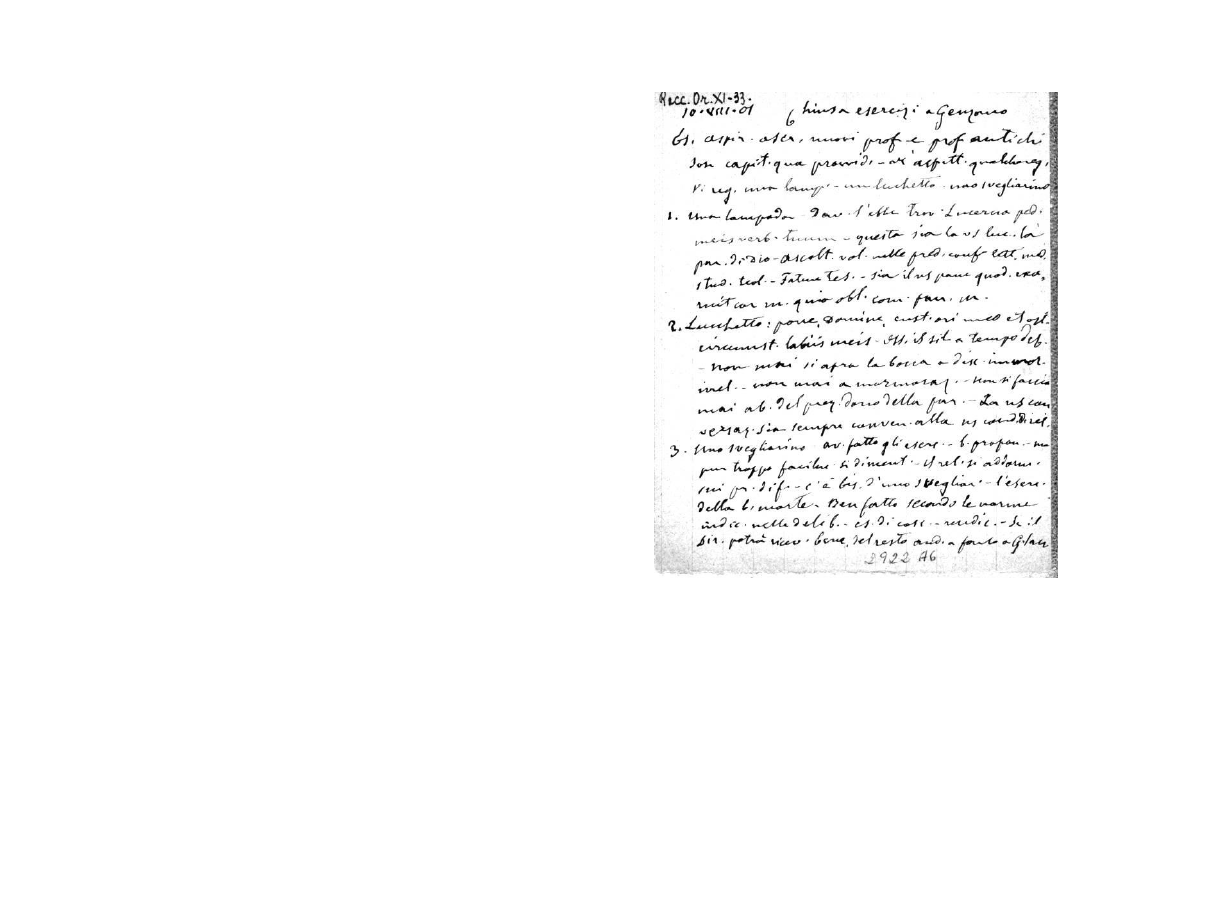 Racc. Or. XI-33.
10-VIII-01 Chiusa esercizi a Genzano
Es. aspir. ascr, nuovi prof. e prof antichi
Son capit. qua provvid. - aspett. qualche reg.
Vi reg. una lamp. - un luchetto - uno svegliarino
1. Una lampada - Dav. l'ebbe trov. Lucerna ped.
meis verb. tuum - questa sia la vs luc. la
par. di Dio - ascolt. vol. nelle pred. conf. lett. med.
stud. teol. - - sia il vs pane quod.
cor m. quia obl. com. pan. m.
2. Lucchetto: pone, Domine, cust. ori meo et ost.
circumst. labiis meis - Oss. il sil. a tempo deb.
- non mai si apra la bocca a disc. immor.
irrel. - non mai a mormoraz. - non si faccia
mai ab. del prez. dono della par. - La vs con
versaz. sia sempre conven. alla vs cond. di rel.
3. Uno svegliarino - av. fatto gli eserc. - b. propon. - ma
pur troppo facilm. si diment. - il rel. si addorm.
sui pr. dif. - c'è bis. d'uno svegliar. - l'eserc.
della b. morte - Ben fatto secondo le norme
indic. nelle delib. - es. di cosc. - rendic. - Se il
Dir. potrà ricev. bene, del resto and. a fondo a G. Sacr
2922 A6